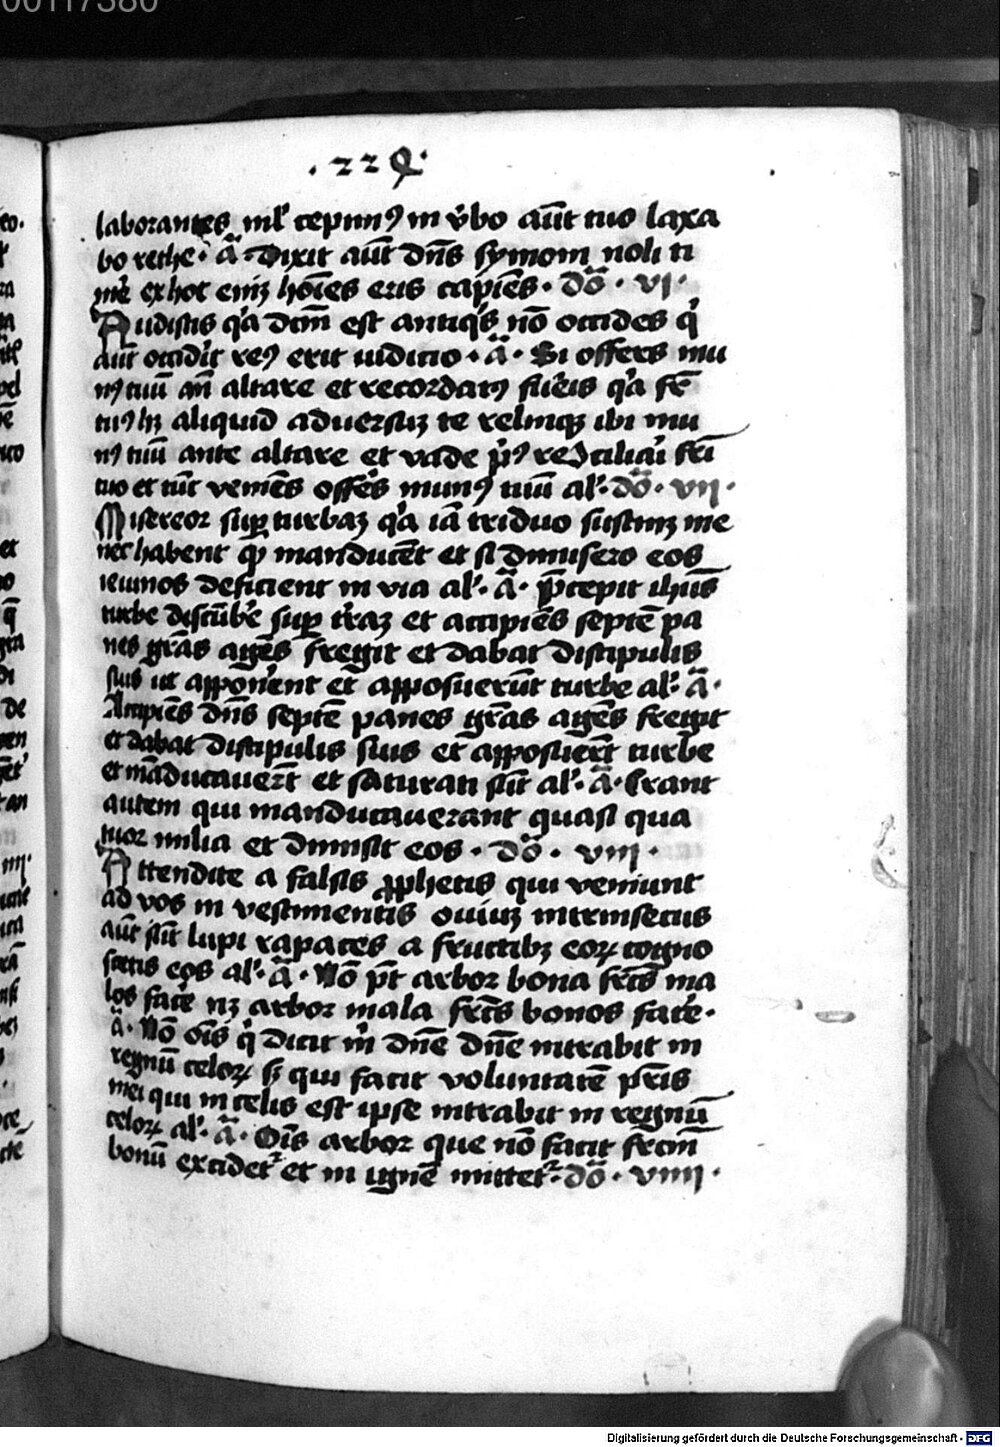 00117380
·224·
laborantes nil̄ cepim9 in v̓bo aūt tuo laxa
bo rethe · ā · Dixit aūt dn̄s symoni noli ti
me̓ ex hoc eniʒ hoīes eris capiēs · dō · vi ·
Audistis q̓a dcm̄ est antiq̓s nō occides q̓
aūt occid̓it re9 erit iudicio · ā · Si offers mu
n9 tuū an̄ altare et recordat9 fu̓eis q̓a fr̄
tu9 hʒ aliquid adversuʒ te relinqʒ ibi mu
n9 tuū ante altare et vade p̓9 recōciliai̓ fr̄i
tuo et tūc veniēs offe̓s mun9 tuū al̓ · dō · vii ·
Misereor sup̱ turbaʒ q̓a iā triduo sustinʒ me
nec habent q̓ manducēt et si dimisero eos
ieiunos deficient in via al̓ · ā · p̄cepit ih̄us
turbe discūbe̓ sup̱ t̓raʒ et accipiēs septē pa
nes gr̄as agēs fregit et dabat discipulis
suis ut appōn̓ent et apposuerūt turbe al̓ · ā ·
Accipiēs dn̄s septē panes gr̄as agēs fregit
et dabat discipulis suis et apposuer̄t turbe
et māducaver̄t et saturati sūt al̓ · ā · Erant
autem qui manducaverant quasi qua
tuor milia et dimisit eos · dō · viii ·
Attendite a falsis ꝓphetis qui veniunt
ad vos in vestimentis oviuʒ intrinsecus
aūt sūt lupi rapaces a fructibʒ eoꝝ cogno
scetis eos al̓ · ā · Nō pt̄ arbor bona frc̄s ma
los face̓ nʒ arbor mala frc̄s bonos face̓ ·
ā · Nō oīs q̓ dicit m̓ dn̄e dn̄e intrabit in
regnū celoꝝ sʒ qui facit voluntatē pr̄is
mei qui in celis est ipse intrabit in regnū
celoꝝ al̓ · ā · Oīs arbor que nō facit frcm̄
bonū excidet᷑ et in ignē mittet᷑ · dō · viiii ·
Digitalisierung gefördert durch die Deutsche Forschungsgemeinschaft - DFG